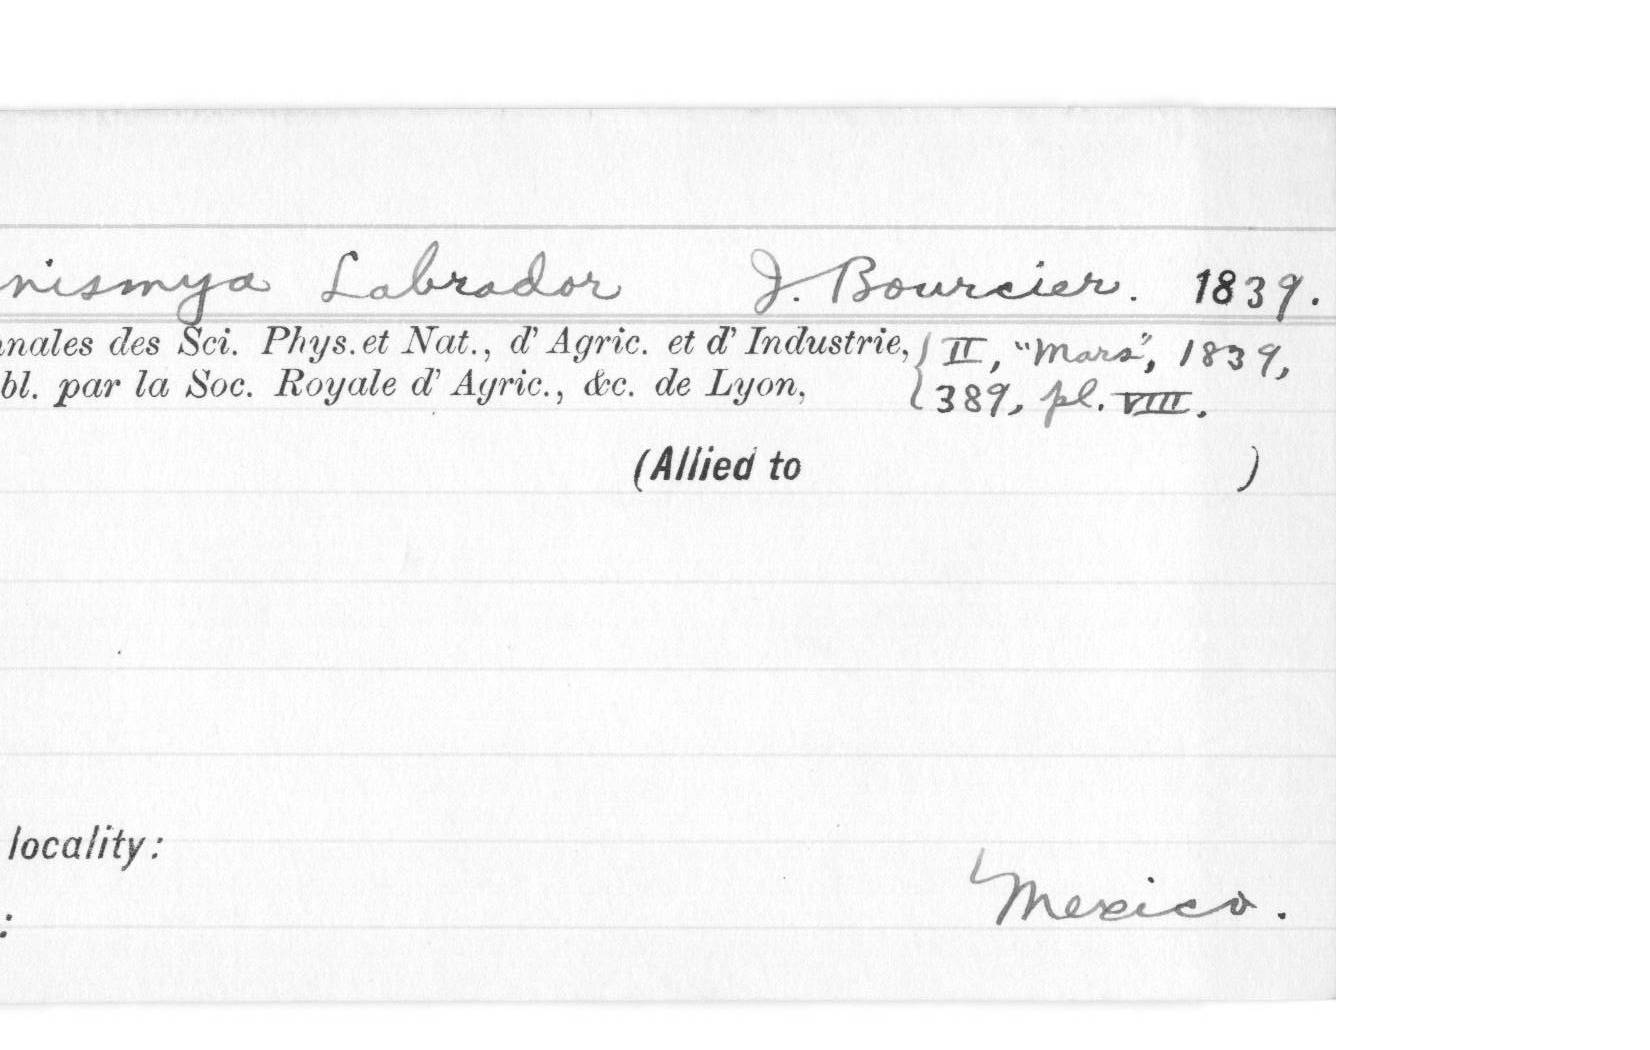 nismya Labrador J. Bourcier. 1839.
nnales des Sci. Phys. et Nat., d' Agric. et d' Industrie, { II, "Mars", 1839,
bl. par la Soc. Royale d' Agric., &c. de Lyon, 389, pl. VIII.
(Allied to )
locality:
Mexico.
: